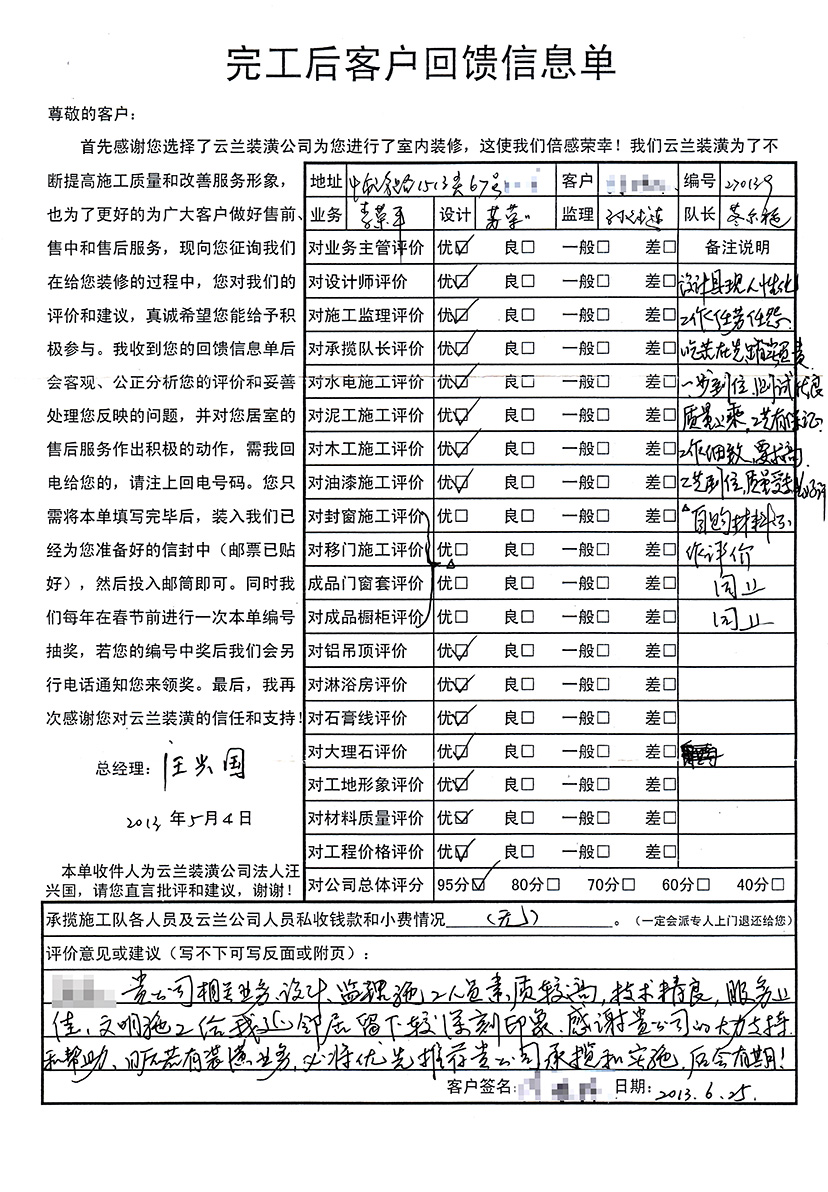 完工后客户回馈信息单
尊敬的客户：
首先感谢您选择了云兰装潢公司为您进行了室内装修，这使我们倍感荣幸！我们云兰装潢为了不
断提高施工质量和改善服务形象，
也为了更好的为广大客户做好售前、
售中和售后服务，现向您征询我们
在给您装修的过程中，您对我们的
评价和建议，真诚希望您能给予积
极参与。我收到您的回馈信息单后
会客观、公正分析您的评价和妥善
处理您反映的问题，并对您居室的
售后服务作出积极的动作，需我回
电给您的，请注上回电号码。您只
需将本单填写完毕后，装入我们已
经为您准备好的信封中（邮票已贴
好），然后投入邮筒即可。同时我
们每年在春节前进行一次本单编号
抽奖，若您的编号中奖后我们会另
行电话通知您来领奖。最后，我再
次感谢您对云兰装潢的信任和支持！
总经理：汪兴国
2013 年5月4日
本单收件人为云兰装潢公司法人汪
兴国，请您直言批评和建议，谢谢！
地址 1513弄67号 客户 编号 270139
业务 设计 监理 队长
对业务主管评价 优☑ 良□ 一般□ 差□ 备注说明
对设计师评价 优☑ 良□ 一般□ 差□ 设计县现人性化
对施工监理评价 优☑ 良□ 一般□ 差□ 工作任劳任怨
对承揽队长评价 优☑ 良□ 一般□ 差□ 吃苦在先
对水电施工评价 优☑ 良□ 一般□ 差□ 一步到位 测试优良
对泥工施工评价 优☑ 良□ 一般□ 差□ 质量上乘，工艺有保证
对木工施工评价 优☑ 良□ 一般□ 差□ 工作细致，要求高
对油漆施工评价 优☑ 良□ 一般□ 差□ 工艺到位，质量受
对封窗施工评价 优□ 良□ 一般□ 差□ △自购材料不
对移门施工评价 优□ 良□ 一般□ 差□ 作评价
成品门窗套评价 优□ 良□ 一般□ 差□ 同上
对成品橱柜评价 优□ 良□ 一般□ 差□ 同上
对铝吊顶评价 优☑ 良□ 一般□ 差□
对淋浴房评价 优☑ 良□ 一般□ 差□
对石膏线评价 优☑ 良□ 一般□ 差□
对大理石评价 优☑ 良□ 一般□ 差□
对工地形象评价 优☑ 良□ 一般□ 差□
对材料质量评价 优☑ 良□ 一般□ 差□
对工程价格评价 优☑ 良□ 一般□ 差□
对公司总体评分 95分☑ 80分□ 70分□ 60分□ 40分□
承揽施工队各人员及云兰公司人员私收钱款和小费情况（无）。（一定会派专人上门退还给您）
评价意见或建议（写不下可写反面或附页）：
贵公司相关业务、设计、监理施工人员素质较高，技术精良，服务上
佳、文明施工给我近邻居留下较深刻印象。感谢贵公司的大力支持
和帮助、日后若有装潢业务，必将优先推荐贵公司承揽和实施，后会有期！
客户签名： 日期：2013.6.25.